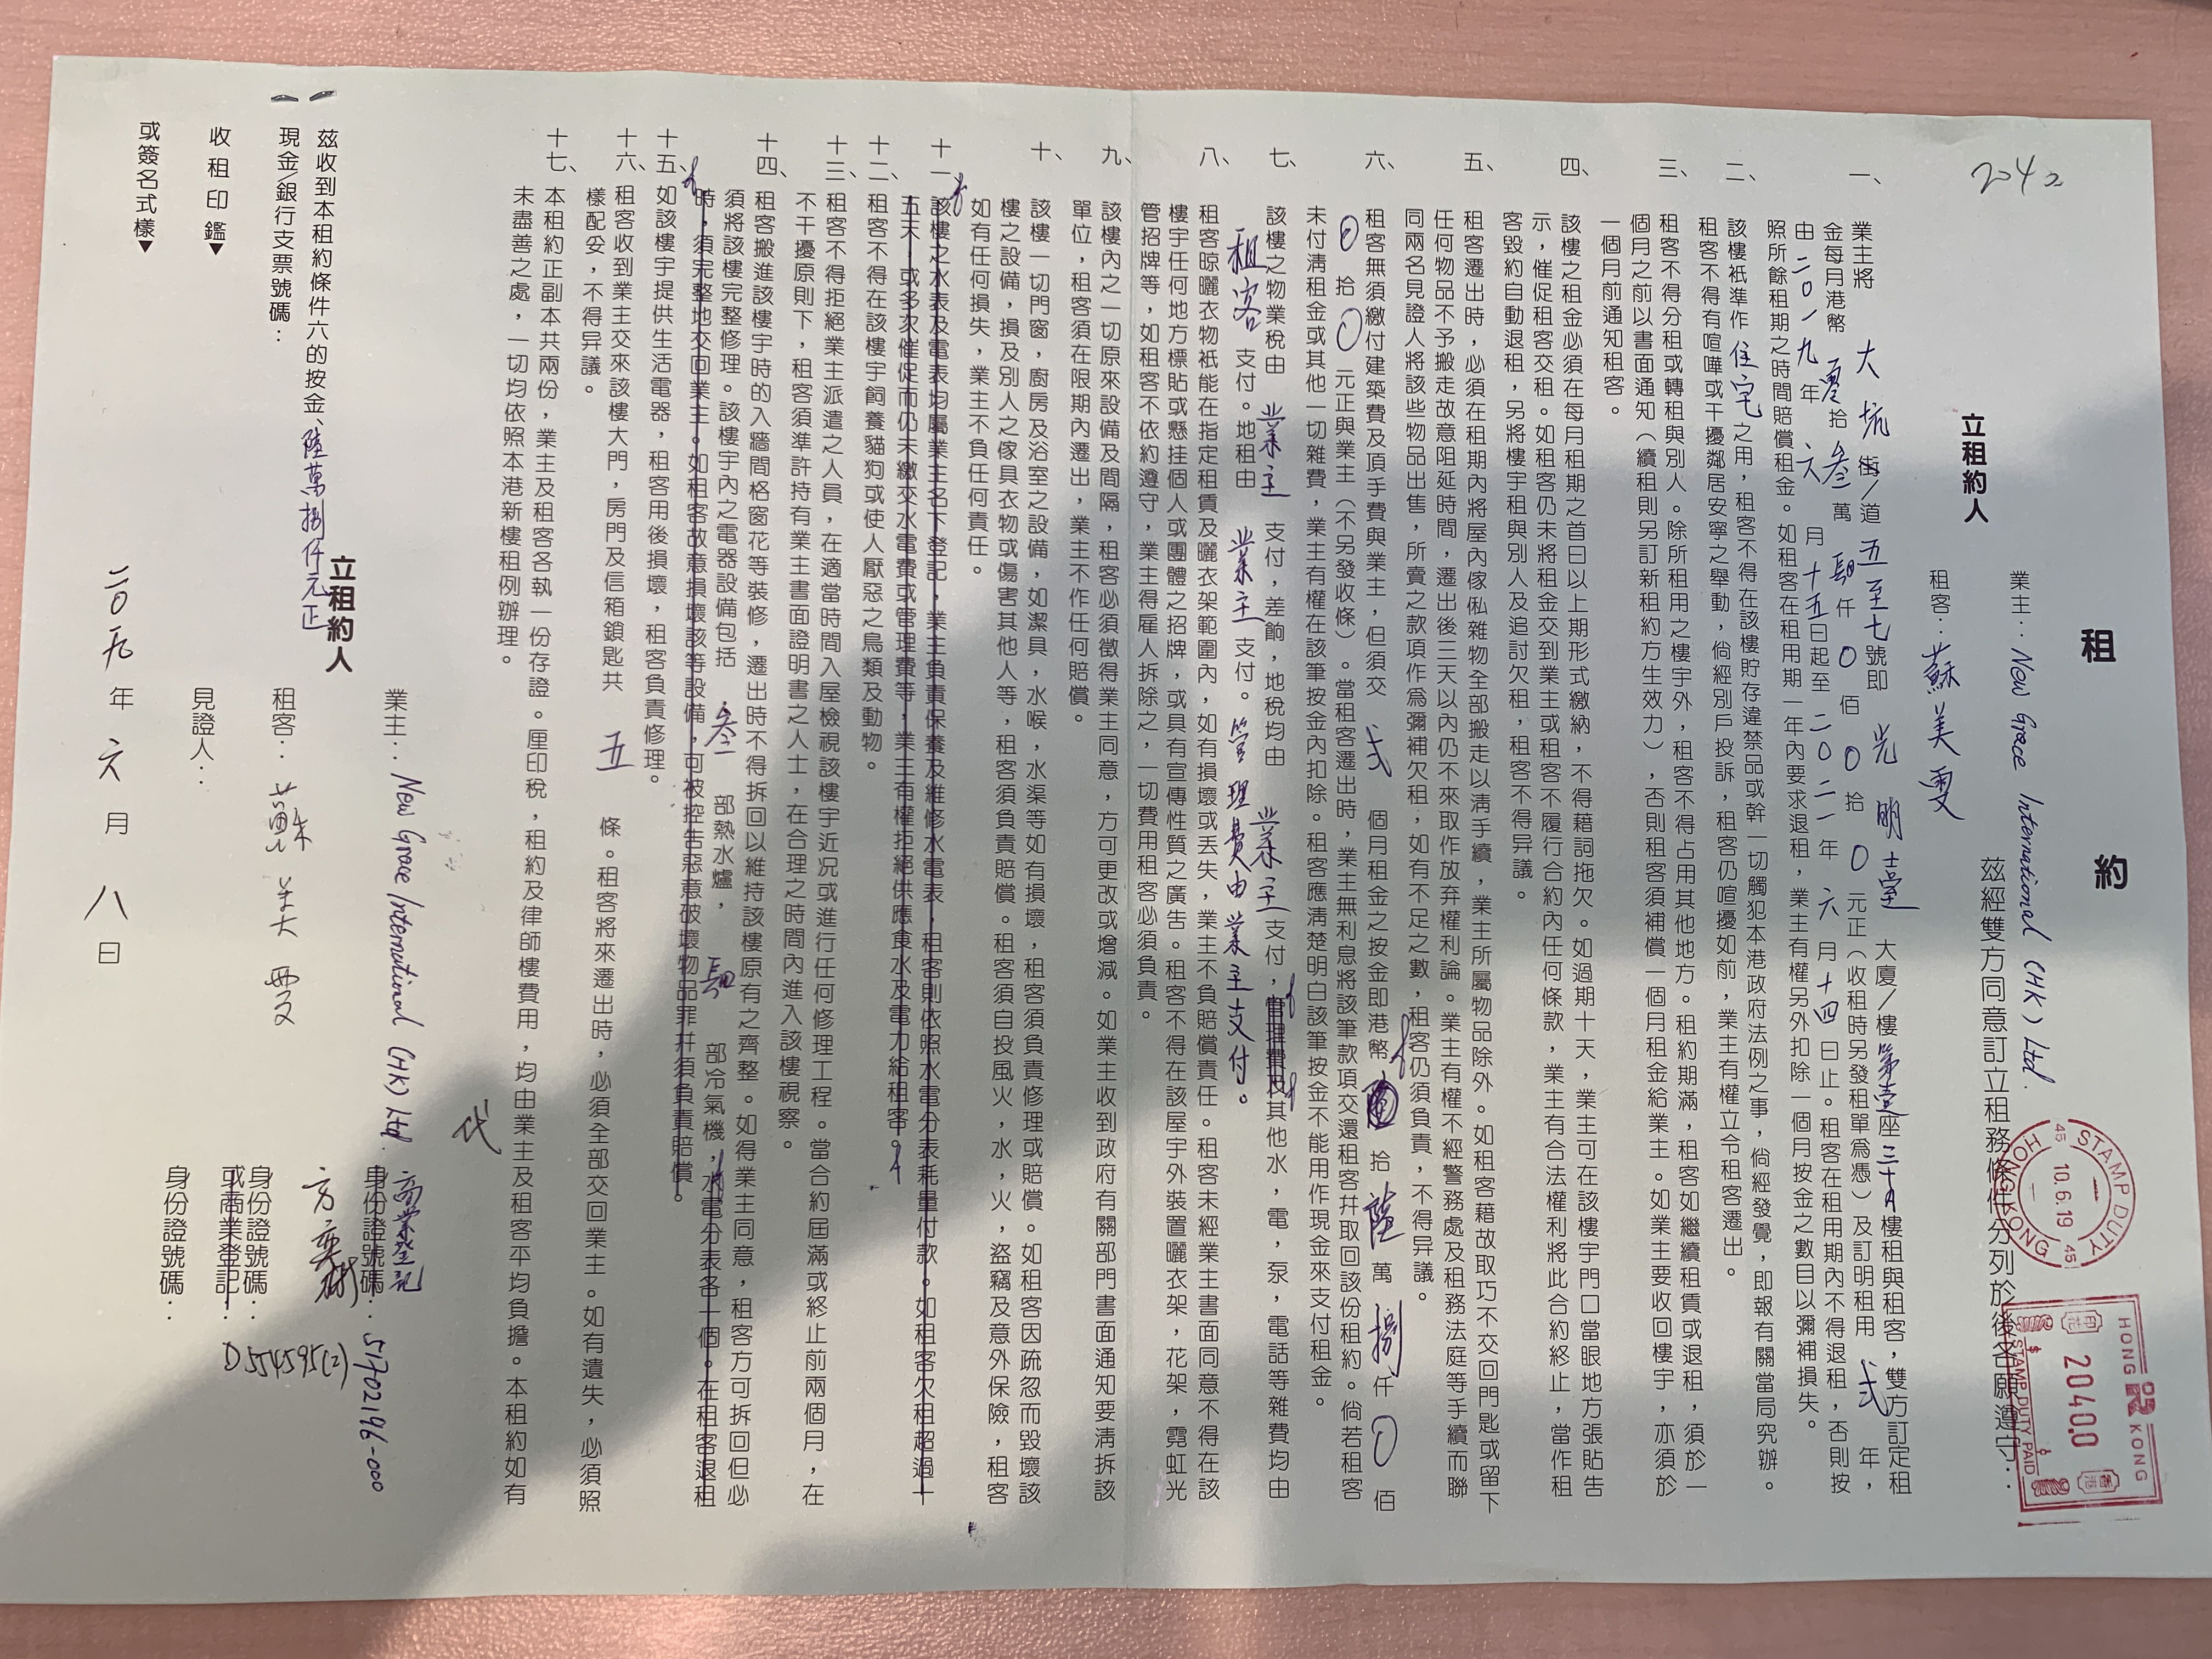 租約
2042
HONG KONG
2040.0
STAMP DUTY PAID
STAMP DUTY
10.6.19
HONG KONG
45 45
立租約人
業主：New Grace International (HK) Ltd.
租客：蘇美雯
茲經雙方同意訂立租務條件分列於後各願遵守：
一、業主將 大坑 街/道 五至七 號即 光明臺 大廈/樓 第壹座 三十A 樓租與租客，雙方訂定租
金每月港幣 零 拾 叁 萬 肆 仟 0 佰 0 拾 0 元正（收租時另發租單爲憑）及訂明租用 弍 年，
由 二0一九 年 六 月 十五 日起至 二0二一 年 六 月 十四 日止。租客在租用期內不得退租，否則按
照所餘租期之時間賠償租金。如租客在租用期一年內要求退租，業主有權另外扣除一個月按金之數目以彌補損失。
二、該樓衹準作 住宅 之用，租客不得在該樓貯存違禁品或幹一切觸犯本港政府法例之事，倘經發覺，即報有關當局究辦。
租客不得有喧嘩或干擾鄰居安寧之舉動，倘經別戶投訴，租客仍喧擾如前，業主有權立令租客遷出。
三、租客不得分租或轉租與別人。除所租用之樓宇外，租客不得占用其他地方。租約期滿，租客如繼續租賃或退租，須於一
個月之前以書面通知（續租則另訂新租約方生效力），否則租客須補償一個月租金給業主。如業主要收回樓宇，亦須於
一個月前通知租客。
四、該樓之租金必須在每月租期之首日以上期形式繳納，不得藉詞拖欠。如過期十天，業主可在該樓宇門口當眼地方張貼告
示，催促租客交租。如租客仍未將租金交到業主或租客不履行合約內任何條款，業主有合法權利將此合約終止，當作租
客毀約自動退租，另將樓宇租與別人及追討欠租，租客不得异議。
五、租客遷出時，必須在租期內將屋內傢俬雜物全部搬走以清手續，業主所屬物品除外。如租客藉故取巧不交回門匙或留下
任何物品不予搬走故意阻延時間，遷出後三天以內仍不來取作放弃權利論。業主有權不經警務處及租務法庭等手續而聯
同兩名見證人將該些物品出售，所賣之款項作爲彌補欠租，如有不足之數，租客仍須負責，不得异議。
六、租客無須繳付建築費及頂手費與業主，但須交 弍 個月租金之按金即港幣 拾 陸 萬 捌 仟 0 佰
0 拾 0 元正與業主（不另發收條）。當租客遷出時，業主無利息將該筆款項交還租客幷取回該份租約。倘若租客
未付清租金或其他一切雜費，業主有權在該筆按金內扣除。租客應清楚明白該筆按金不能用作現金來支付租金。
七、該樓之物業稅由 業主 支付，差餉，地稅均由 業主 支付，管理費及其他水，電，泵，電話等雜費均由
租客 支付。地租由 業主 支付。管理費由業主支付。
八、租客晾曬衣物衹能在指定租賃及曬衣架範圍內，如有損壞或丟失，業主不負賠償責任。租客未經業主書面同意不得在該
樓宇任何地方標貼或懸挂個人或團體之招牌，或具有宣傳性質之廣告。租客不得在該屋宇外裝置曬衣架，花架，霓虹光
管招牌等，如租客不依約遵守，業主得雇人拆除之，一切費用租客必須負責。
九、該樓內之一切原來設備及間隔，租客必須徵得業主同意，方可更改或增減。如業主收到政府有關部門書面通知要清拆該
單位，租客須在限期內遷出，業主不作任何賠償。
十、該樓一切門窗，廚房及浴室之設備，如潔具，水喉，水渠等如有損壞，租客須負責修理或賠償。如租客因疏忽而毀壞該
樓之設備，損及別人之傢具衣物或傷害其他人等，租客須負責賠償。租客須自投風火，水，火，盜竊及意外保險，租客
如有任何損失，業主不負任何責任。
十一、該樓之水表及電表均屬業主名下登記，業主負責保養及維修水電表，租客則依照水電分表耗量付款。如租客欠租超過十
五天，或多次催促而仍未繳交水電費或管理費等，業主有權拒絕供應食水及電力給租客。
十二、租客不得在該樓宇飼養貓狗或使人厭惡之鳥類及動物。
十三、租客不得拒絕業主派遣之人員，在適當時間入屋檢視該樓宇近況或進行任何修理工程。當合約屆滿或終止前兩個月，在
不干擾原則下，租客須準許持有業主書面證明書之人士，在合理之時間內進入該樓視察。
十四、租客搬進該樓宇時的入牆間格窗花等裝修，遷出時不得拆回以維持該樓原有之齊整。如得業主同意，租客方可拆回但必
須將該樓完整修理。該樓宇內之電器設備包括 叁 部熱水爐， 肆 部冷氣機，水電分表各一個。在租客退租
時，須完整地交回業主。如租客故意損壞該等設備，可被控告惡意破壞物品罪幷須負責賠償。
十五、如該樓宇提供生活電器，租客用後損壞，租客負責修理。
十六、租客收到業主交來該樓大門，房門及信箱鎖匙共 五 條。租客將來遷出時，必須全部交回業主。如有遺失，必須照
樣配妥，不得异議。
十七、本租約正副本共兩份，業主及租客各執一份存證。厘印稅，租約及律師樓費用，均由業主及租客平均負擔。本租約如有
未盡善之處，一切均依照本港新樓租例辦理。
立租約人
業主：New Grace International (HK) Ltd. 代
商業登記
身份證號碼：51702196-000
租客：蘇美雯
身份證號碼：
或商業登記：D554595(2)
見證人：
身份證號碼：
二0一九 年 六 月 八 日
茲收到本租約條件六的按金、陸萬捌仟元正
現金/銀行支票號碼：
收租印鑑▼
或簽名式樣▼